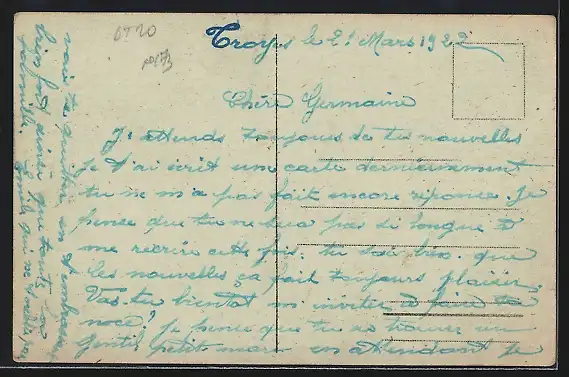 Troyes le 21 Mars 1922
Chère Germaine
J'attends toujours de tes nouvelles
je t'ai écrit une carte dernièrement
tu ne m'a pas fait encore réponse. Je
pense que tu ne sera pas si longue à
me recrire cette fois. tu sais bien que
les nouvelles ça fait toujours plaisir
Vas-tu bientot m'inviter à faire ta
noce? je pense que tu as trouver un
gentil petit mari en attendant je
vais te quitter en t'embrassant
bien fort ainsi que toute la
famille.